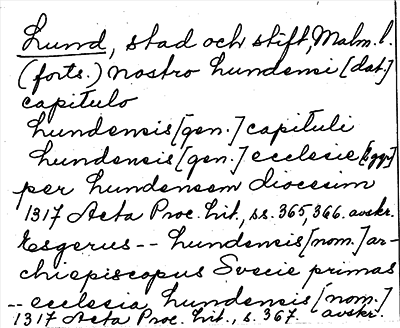 Lund, stad och stift, Malm. l.
(forts.) nostro Lundensi [dat.]
capitulo
Lundensis [gen.] capituli
Lundensis [gen.] ecclesie [2ggr]
per Lundensem diocesim
1317 Acta Proc. Lit., ss. 365, 366. avskr.
Esgerus -- Lundensis [nom.] ar-
chiepiscopus Svecie primas
-- ecclesia Lundensis [nom.]
1317 Acta Proc. Lit., s. 367. avskr.